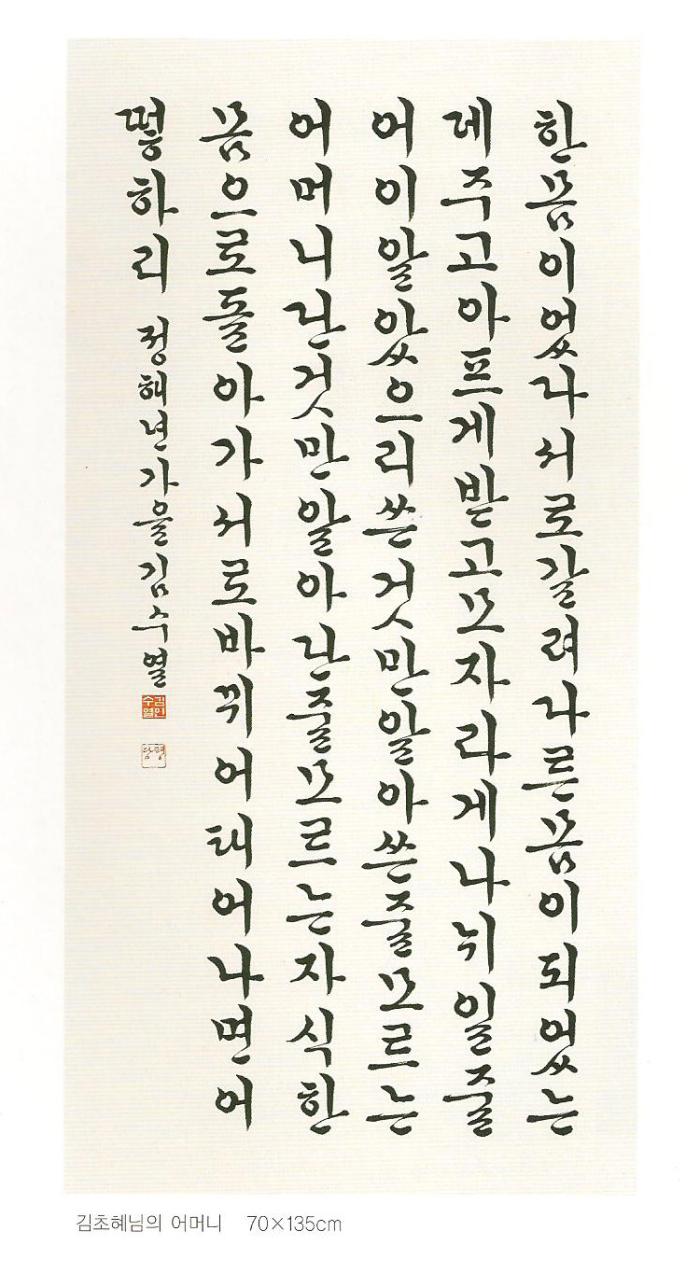 한몸이었다서로갈려다른몸이되었는
데주고아프게받고모자라게나뉘일줄
어이알았으리쓴것만알아쓴줄모르는
어머니단것만알아단줄모르는자식한
몸으로돌아가서로바뀌어태어나면어
떻하리 정해년가을김수열
김초혜님의 어머니 70×135cm